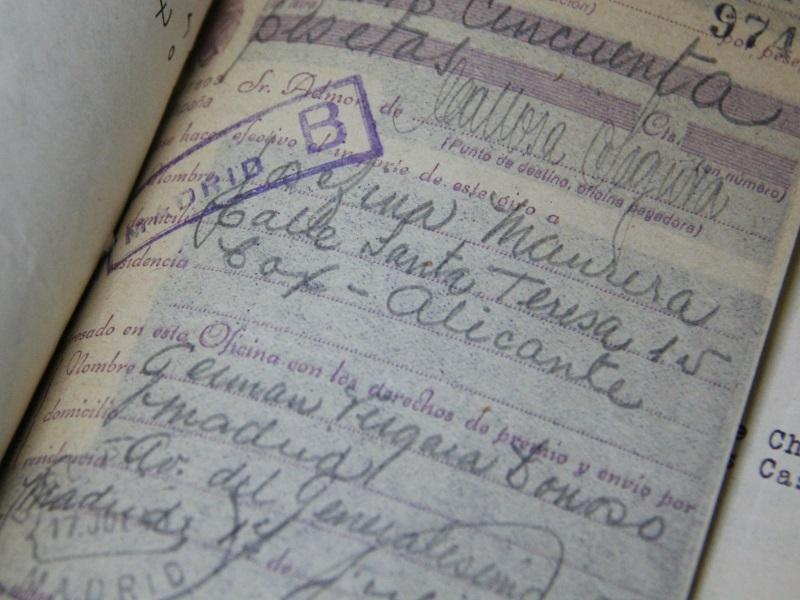 Cincuenta
974
pesetas
por pese
Sr. Admor. de Callosa Segura
Cts.
(en número)
(Punto de destino, oficina pagadora)
hacer efectivo el importe de este giro a
MADRID B
Nombre Josefina Maurera
domicilio Calle Santa Teresa 15
residencia Cox - Alicante
resado en esta Oficina con los derechos de premio y envío por
Nombre German Vergara Donoso
domicilio Madrid
residencia Av. del Generalísimo
Madrid
de
17 JUL
MADRID
Ch
Ca